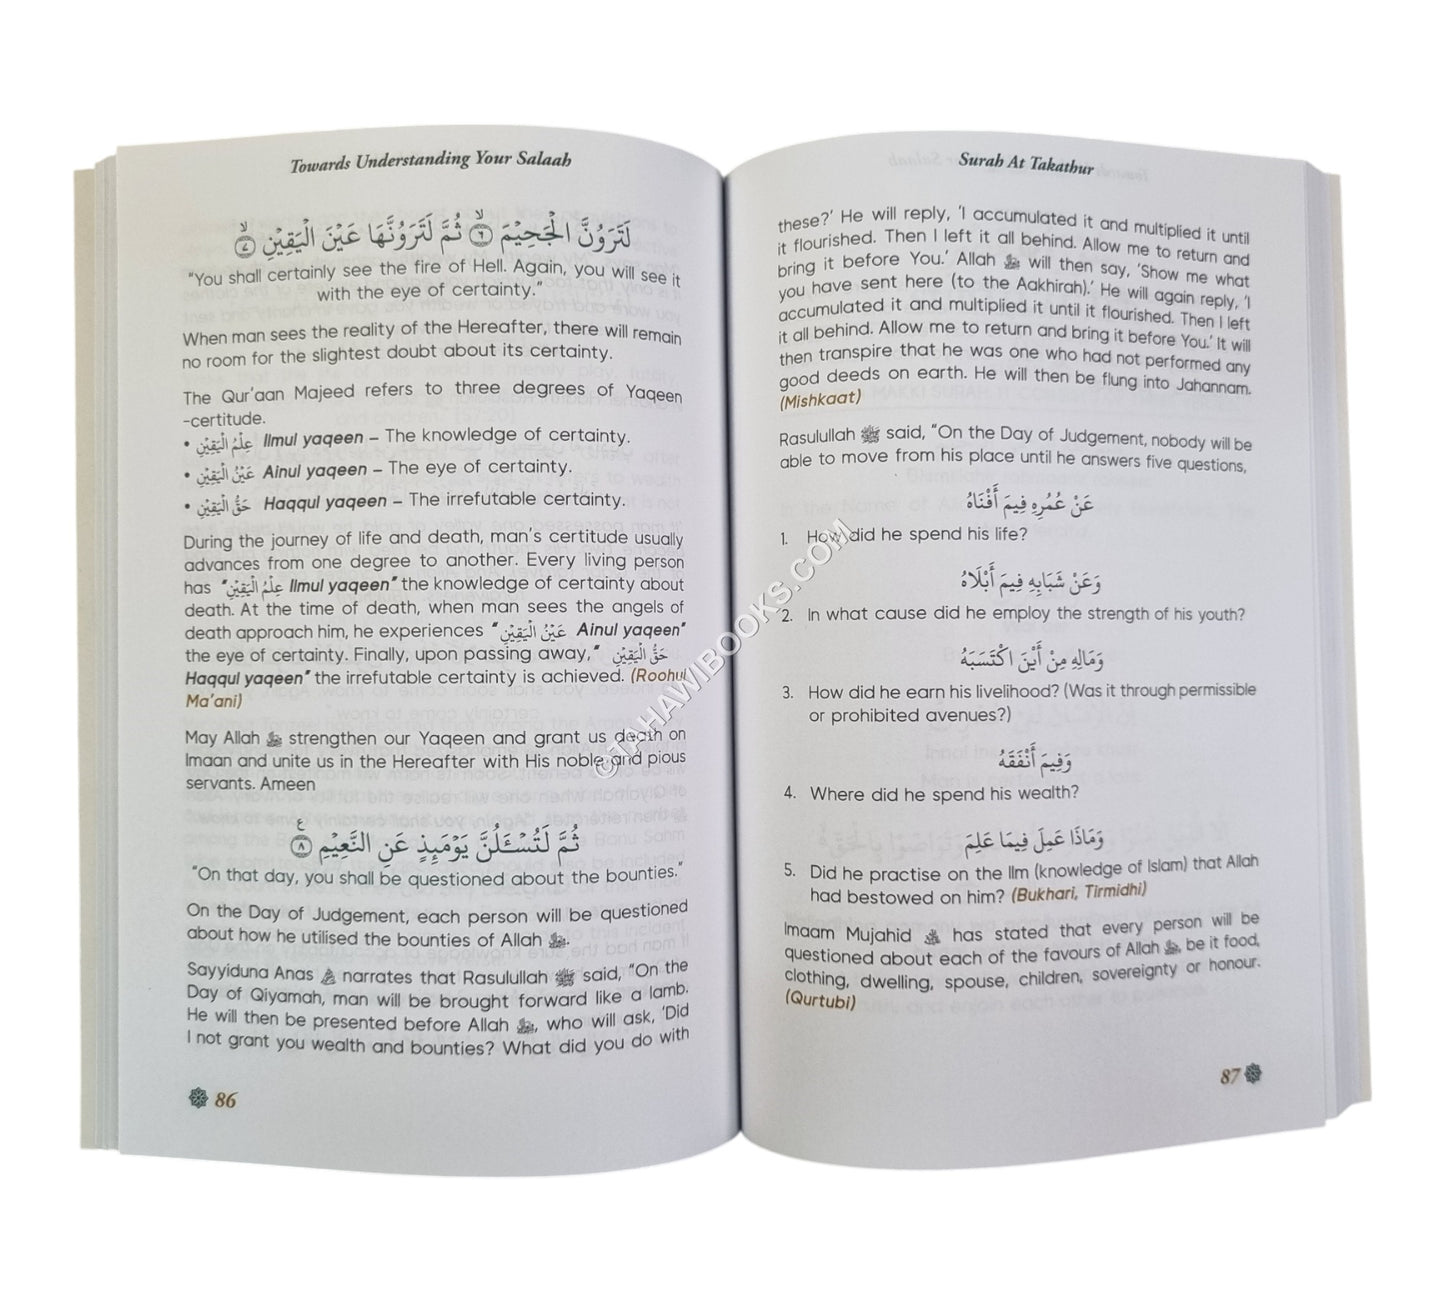 Towards Understanding Your Salaah
لَتَرَوُنَّ الْجَحِيْمَ ۙ﴿٦﴾ ثُمَّ لَتَرَوُنَّهَا عَيْنَ الْيَقِيْنِ ۙ﴿٧﴾
"You shall certainly see the fire of Hell. Again, you will see it
with the eye of certainty."
When man sees the reality of the Hereafter, there will remain
no room for the slightest doubt about its certainty.
The Qur'aan Majeed refers to three degrees of Yaqeen
-certitude.
• عِلْمُ الْيَقِيْنِ Ilmul yaqeen – The knowledge of certainty.
• عَيْنُ الْيَقِيْنِ Ainul yaqeen – The eye of certainty.
• حَقُّ الْيَقِيْنِ Haqqul yaqeen – The irrefutable certainty.
During the journey of life and death, man's certitude usually
advances from one degree to another. Every living person
has "عِلْمُ الْيَقِيْنِ Ilmul yaqeen" the knowledge of certainty about
death. At the time of death, when man sees the angels of
death approach him, he experiences "عَيْنُ الْيَقِيْنِ Ainul yaqeen"
the eye of certainty. Finally, upon passing away," حَقُّ الْيَقِيْنِ
Haqqul yaqeen" the irrefutable certainty is achieved. (Roohul
Ma'ani)
May Allah ﷻ strengthen our Yaqeen and grant us death on
Imaan and unite us in the Hereafter with His noble and pious
servants. Ameen
ثُمَّ لَتُسْـَٔلُنَّ يَوْمَىِٕذٍ عَنِ النَّعِيْمِ ﴿٨﴾ ع
"On that day, you shall be questioned about the bounties."
On the Day of Judgement, each person will be questioned
about how he utilised the bounties of Allah ﷻ.
Sayyiduna Anas narrates that Rasulullah ﷺ said, "On the
Day of Qiyamah, man will be brought forward like a lamb.
He will then be presented before Allah ﷻ, who will ask, 'Did
I not grant you wealth and bounties? What did you do with
86
Surah At Takathur
these?' He will reply, 'I accumulated it and multiplied it until
it flourished. Then I left it all behind. Allow me to return and
bring it before You.' Allah ﷻ will then say, 'Show me what
you have sent here (to the Aakhirah).' He will again reply, 'I
accumulated it and multiplied it until it flourished. Then I left
it all behind. Allow me to return and bring it before You.' It will
then transpire that he was one who had not performed any
good deeds on earth. He will then be flung into Jahannam.
(Mishkaat)
Rasulullah ﷺ said, "On the Day of Judgement, nobody will be
able to move from his place until he answers five questions,
عَنْ عُمُرِهِ فِيمَ أَفْنَاهُ
1. How did he spend his life?
وَعَنْ شَبَابِهِ فِيمَ أَبْلَاهُ
2. In what cause did he employ the strength of his youth?
وَمَالِهِ مِنْ أَيْنَ اكْتَسَبَهُ
3. How did he earn his livelihood? (Was it through permissible
or prohibited avenues?)
وَفِيمَ أَنْفَقَهُ
4. Where did he spend his wealth?
وَمَاذَا عَمِلَ فِيمَا عَلِمَ
5. Did he practise on the Ilm (knowledge of Islam) that Allah
had bestowed on him? (Bukhari, Tirmidhi)
Imaam Mujahid has stated that every person will be
questioned about each of the favours of Allah ﷻ, be it food,
clothing, dwelling, spouse, children, sovereignty or honour.
(Qurtubi)
87
©TAHAWIBOOKS.COM